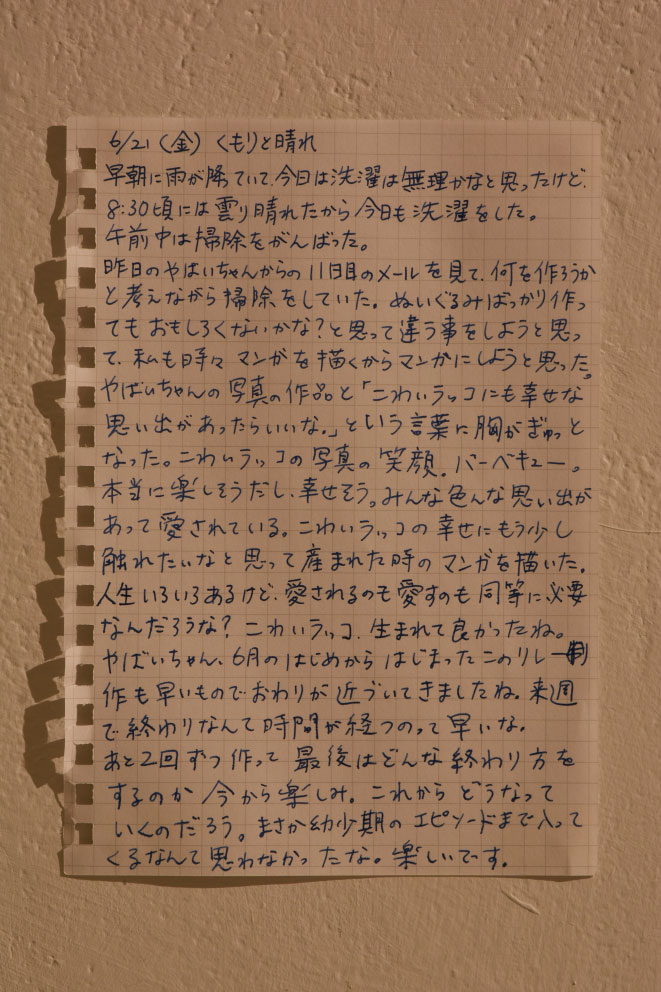 6/21（金）くもりと晴れ
早朝に雨が降っていて、今日は洗濯は無理かなと思ったけど、
8:30頃には曇り晴れたから今日も洗濯をした。
午前中は掃除をがんばった。
昨日のやばいちゃんからの11日目のメールを見て、何を作ろうか
と考えながら掃除をしていた。ぬいぐるみばっかり作っ
てもおもしろくないかな？と思って違う事をしようと思っ
て、私も時々マンガを描くからマンガにしようと思った。
やばいちゃんの写真の作品と「こわいラッコにも幸せな
思い出があったらいいな。」という言葉に胸がぎゅっと
なった。こわいラッコの写真の笑顔、バーベキュー。
本当に楽しそうだし、幸せそう。みんな色んな思い出が
あって愛されている。こわいラッコの幸せにもう少し
触れたいなと思って産まれた時のマンガを描いた。
人生いろいろあるけど、愛されるのも愛すのも同等に必要
なんだろうな？こわいラッコ、生まれて良かったね。
やばいちゃん、6月のはじめからはじまったこのリレー制
作も早いものでおわりが近づいてきましたね。来週
で終わりなんて時間が経つのって早いな。
あと2回ずつ作って最後はどんな終わり方を
するのか今から楽しみ。これからどうなって
いくのだろう。まさか幼少期のエピソードまで入って
くるなんて思わなかったな。楽しいです。